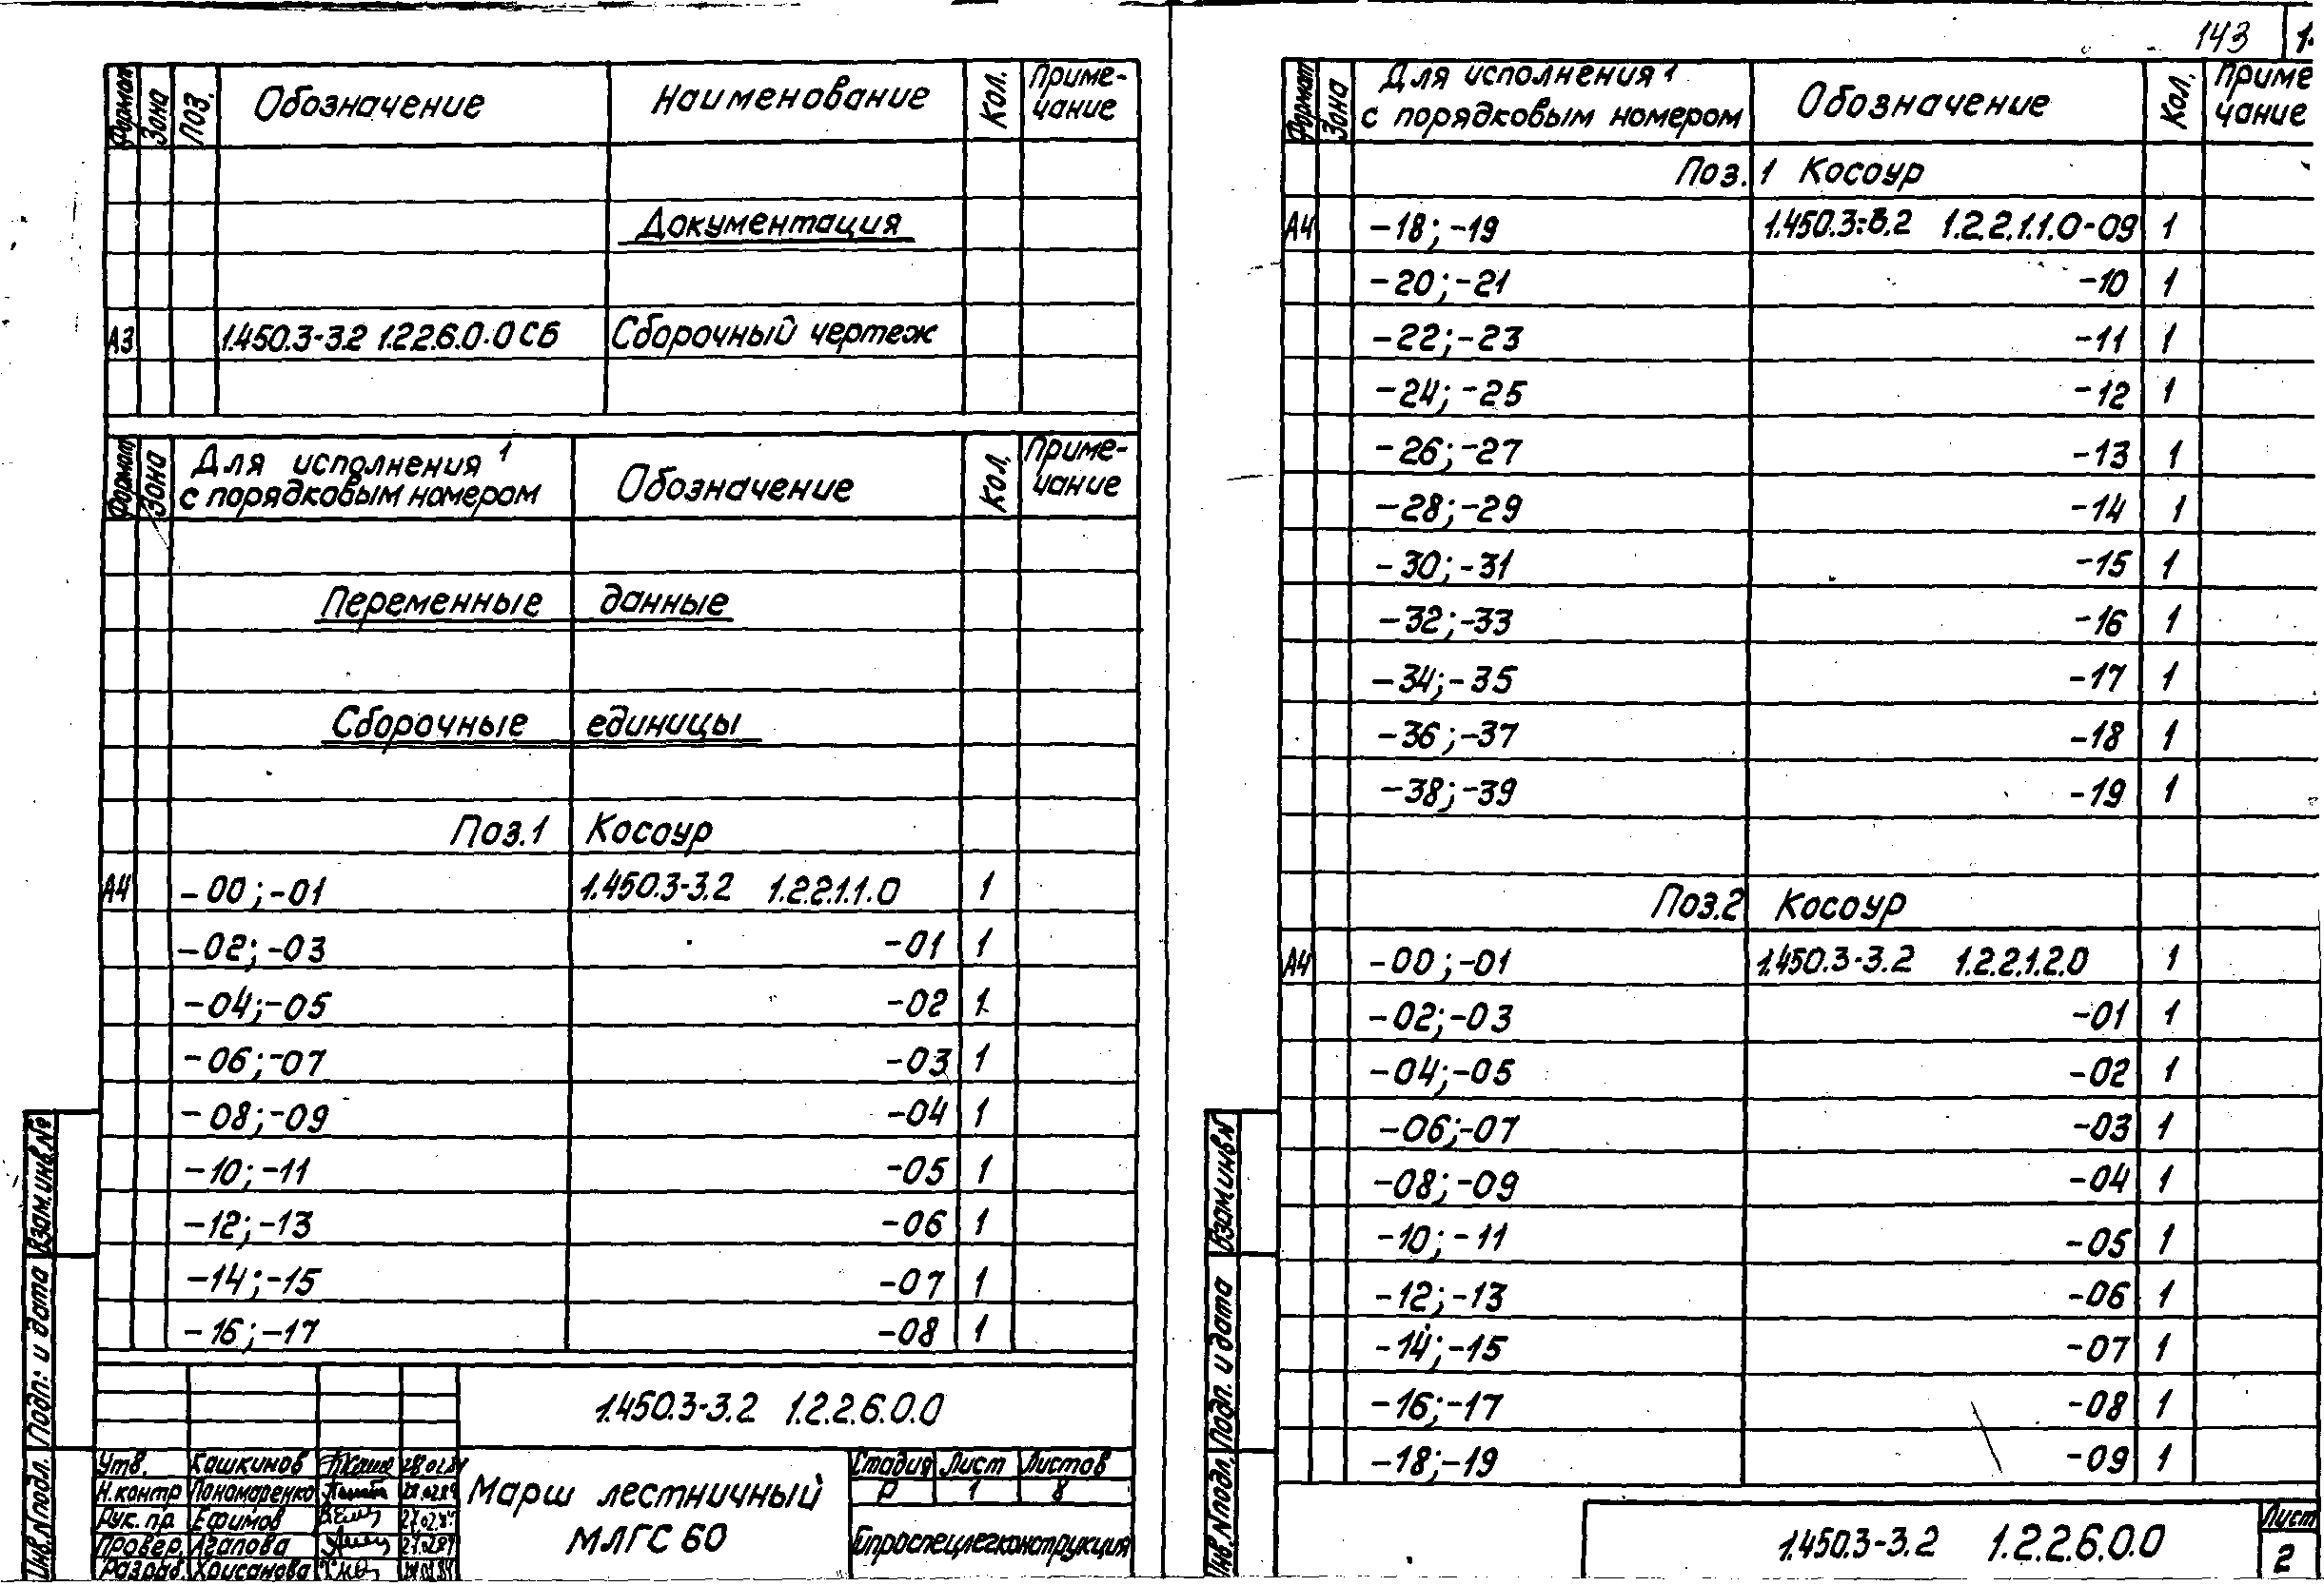 143 1.
Формат Зона Поз. Обозначение Наименование Кол. Приме-
чание
Документация
А3 1.450.3-3.2 1.2.2.6.0.0 СБ Сборочный чертеж
Формат Зона Для исполнения 1
с порядковым номером Обозначение Кол. Приме-
чание
Переменные данные
Сборочные единицы
Поз.1 Косоур
А4 -00;-01 1.450.3-3.2 1.2.2.1.1.0 1
-02;-03 -01 1
-04;-05 -02 1
-06;-07 -03 1
-08;-09 -04 1
-10;-11 -05 1
-12;-13 -06 1
-14;-15 -07 1
-16;-17 -08 1
1.450.3-3.2 1.2.2.6.0.0
Утв. Кашкинов
Н.контр Пономаренко
Рук. пр. Ефимов
Провер. Агапова
Разраб. Хрисанова
Марш лестничный
МЛГС 60
Стадия Лист Листов
Р 1 8
Гипроспецлегконструкция
Взам.инв.№
Подп. и дата
Инв.N подл.
Формат Зона Для исполнения 1
с порядковым номером Обозначение Кол. Приме
чание
Поз.1 Косоур
А4 -18;-19 1.450.3-3.2 1.2.2.1.1.0-09 1
-20;-21 -10 1
-22;-23 -11 1
-24;-25 -12 1
-26;-27 -13 1
-28;-29 -14 1
-30;-31 -15 1
-32;-33 -16 1
-34;-35 -17 1
-36;-37 -18 1
-38;-39 -19 1
Поз.2 Косоур
А4 -00;-01 1.450.3-3.2 1.2.2.1.2.0 1
-02;-03 -01 1
-04;-05 -02 1
-06;-07 -03 1
-08;-09 -04 1
-10;-11 -05 1
-12;-13 -06 1
-14;-15 -07 1
-16;-17 -08 1
-18;-19 -09 1
1.450.3-3.2 1.2.2.6.0.0
Лист
2
Взам инв N
Подп. и дата
Инв.N подл.